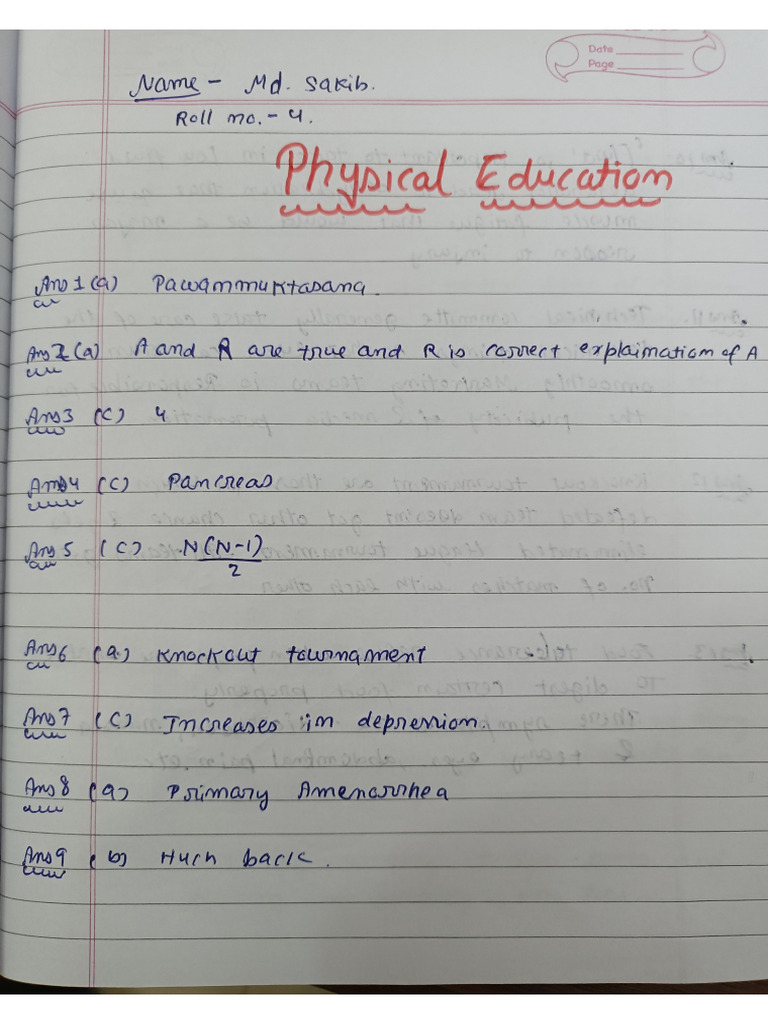 Date
Page
Name - Md. Sakib.
Roll no. - 4.
Physical Education
Ans 1 (a) Pawanmuktasana.
Ans 2 (a) A and R are true and R is correct explaination of A
Ans 3 (C) 4
Ans 4 (C) Pancreas
Ans 5 (C) N(N-1)
2
Ans 6 (a.) Knockout tournament
Ans 7 (C) Increases in depression.
Ans 8 (a) Primary Amenorrhea
Ans 9 (b) Huch back.